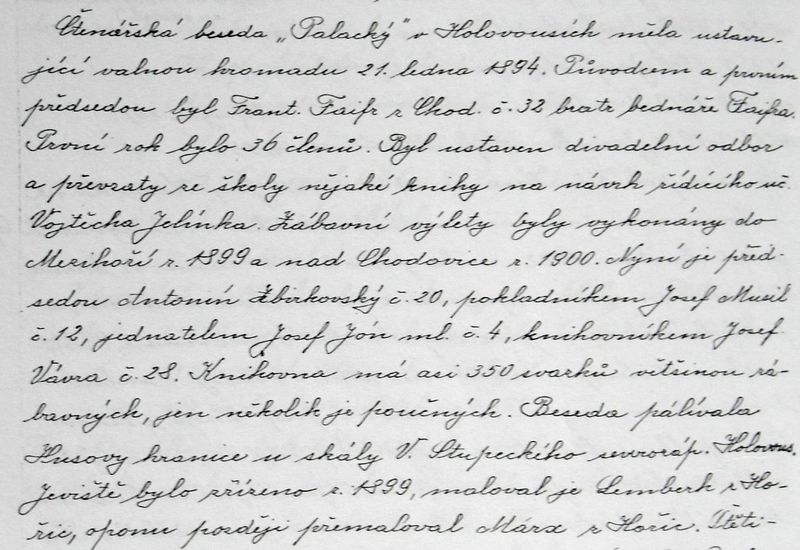 Čtenářská beseda „Palacký" v Holovousích měla ustavu-
jící valnou hromadu 21. ledna 1894. Původcem a prvním
předsedou byl Frant. Faifr z Chod. č. 32 bratr bednáře Faifra.
První rok bylo 36 členů. Byl ustaven divadelní odbor
a převzaty ze školy nějaké knihy na návrh řídícího uč.
Vojtěcha Jelínka. Zábavní výlety byly vykonány do
Mezihoří r. 1899 a nad Chodovice r. 1900. Nyní je před-
sedou Antonín Zbirkovský č. 20, pokladníkem Josef Musil
č. 12, jednatelem Josef Jón ml. č. 4, knihovníkem Josef
Vávra č. 28. Knihovna má asi 350 svazků většinou zá-
bavných, jen několik je poučných. Beseda pálívala
Husovy hranice u skály V. Stupeckého severozáp. Holovous.
Jeviště bylo zřízeno r. 1899, maloval je Lemberk z Ho-
řic, oponu později přemaloval Márx z Hořic. Štěti-